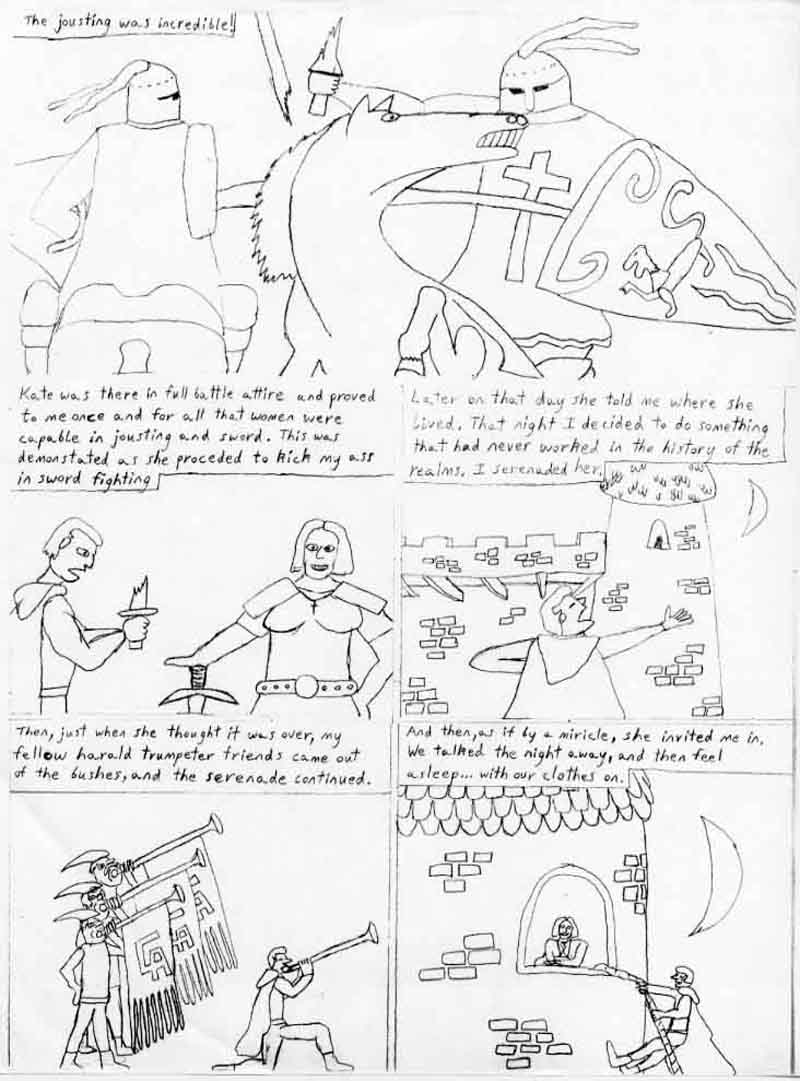 The jousting was incredible!
Kate was there in full battle attire and proved
to me once and for all that women were
capable in jousting and sword. This was
demonstated as she proceded to kick my ass
in sword fighting
Later on that day she told me where she
lived. That night I decided to do something
that had never worked in the history of the
realms. I serenaded her.
Then, just when she thought it was over, my
fellow harald trumpeter friends came out
of the bushes, and the serenade continued.
And then, as if by a miricle, she invited me in.
We talked the night away, and then feel
asleep... with our clothes on.